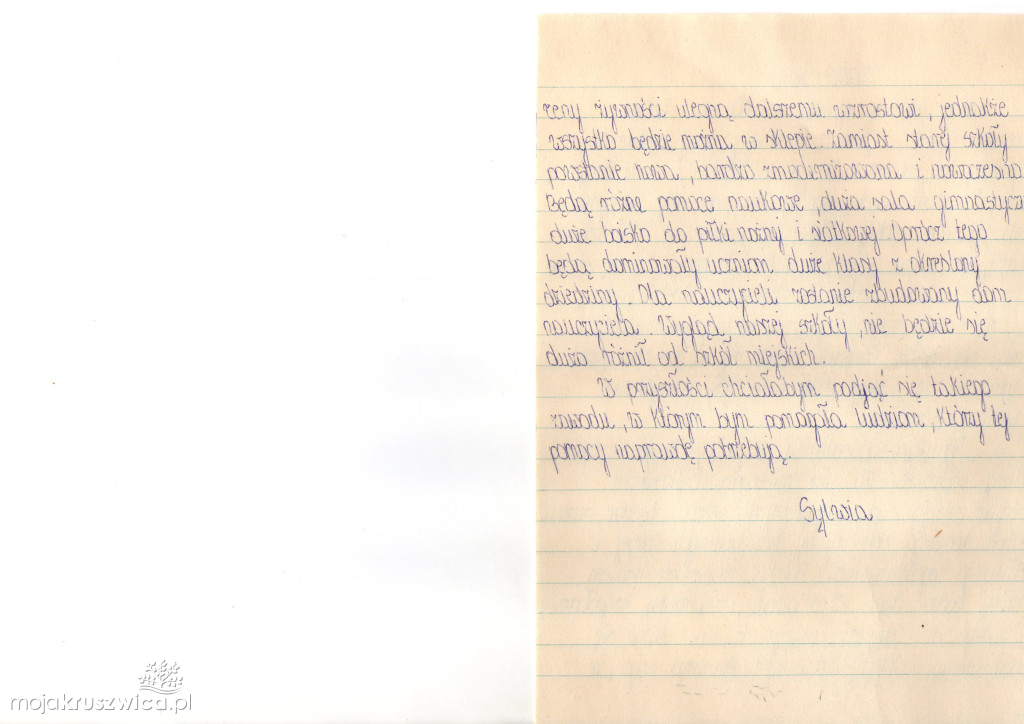 ceny żywności ulegną dalszemu wzrostowi, jednakże
wszystko będzie można w sklepie. Zamiast starej szkoły
powstanie nowa, bardzo zmodernizowana i nowoczesna
Będą różne pomoce naukowe, duża sala gimnastyczn
duże boisko do piłki nożnej i siatkowej Oprócz tego
będą dominowały uczniom duże klasy z określony
dziedziny. Dla nauczycieli zostanie zbudowany dom
nauczyciela. Wygląd naszej szkoły, nie będzie się
dużo różnił od szkół miejskich.
W przyszłości chciałabym podjąć się takiego
zawodu, w którym bym pomagała ludziom, którzy tej
pomocy naprawdę potrzebują.
Sylwia
mojakruszwica.pl